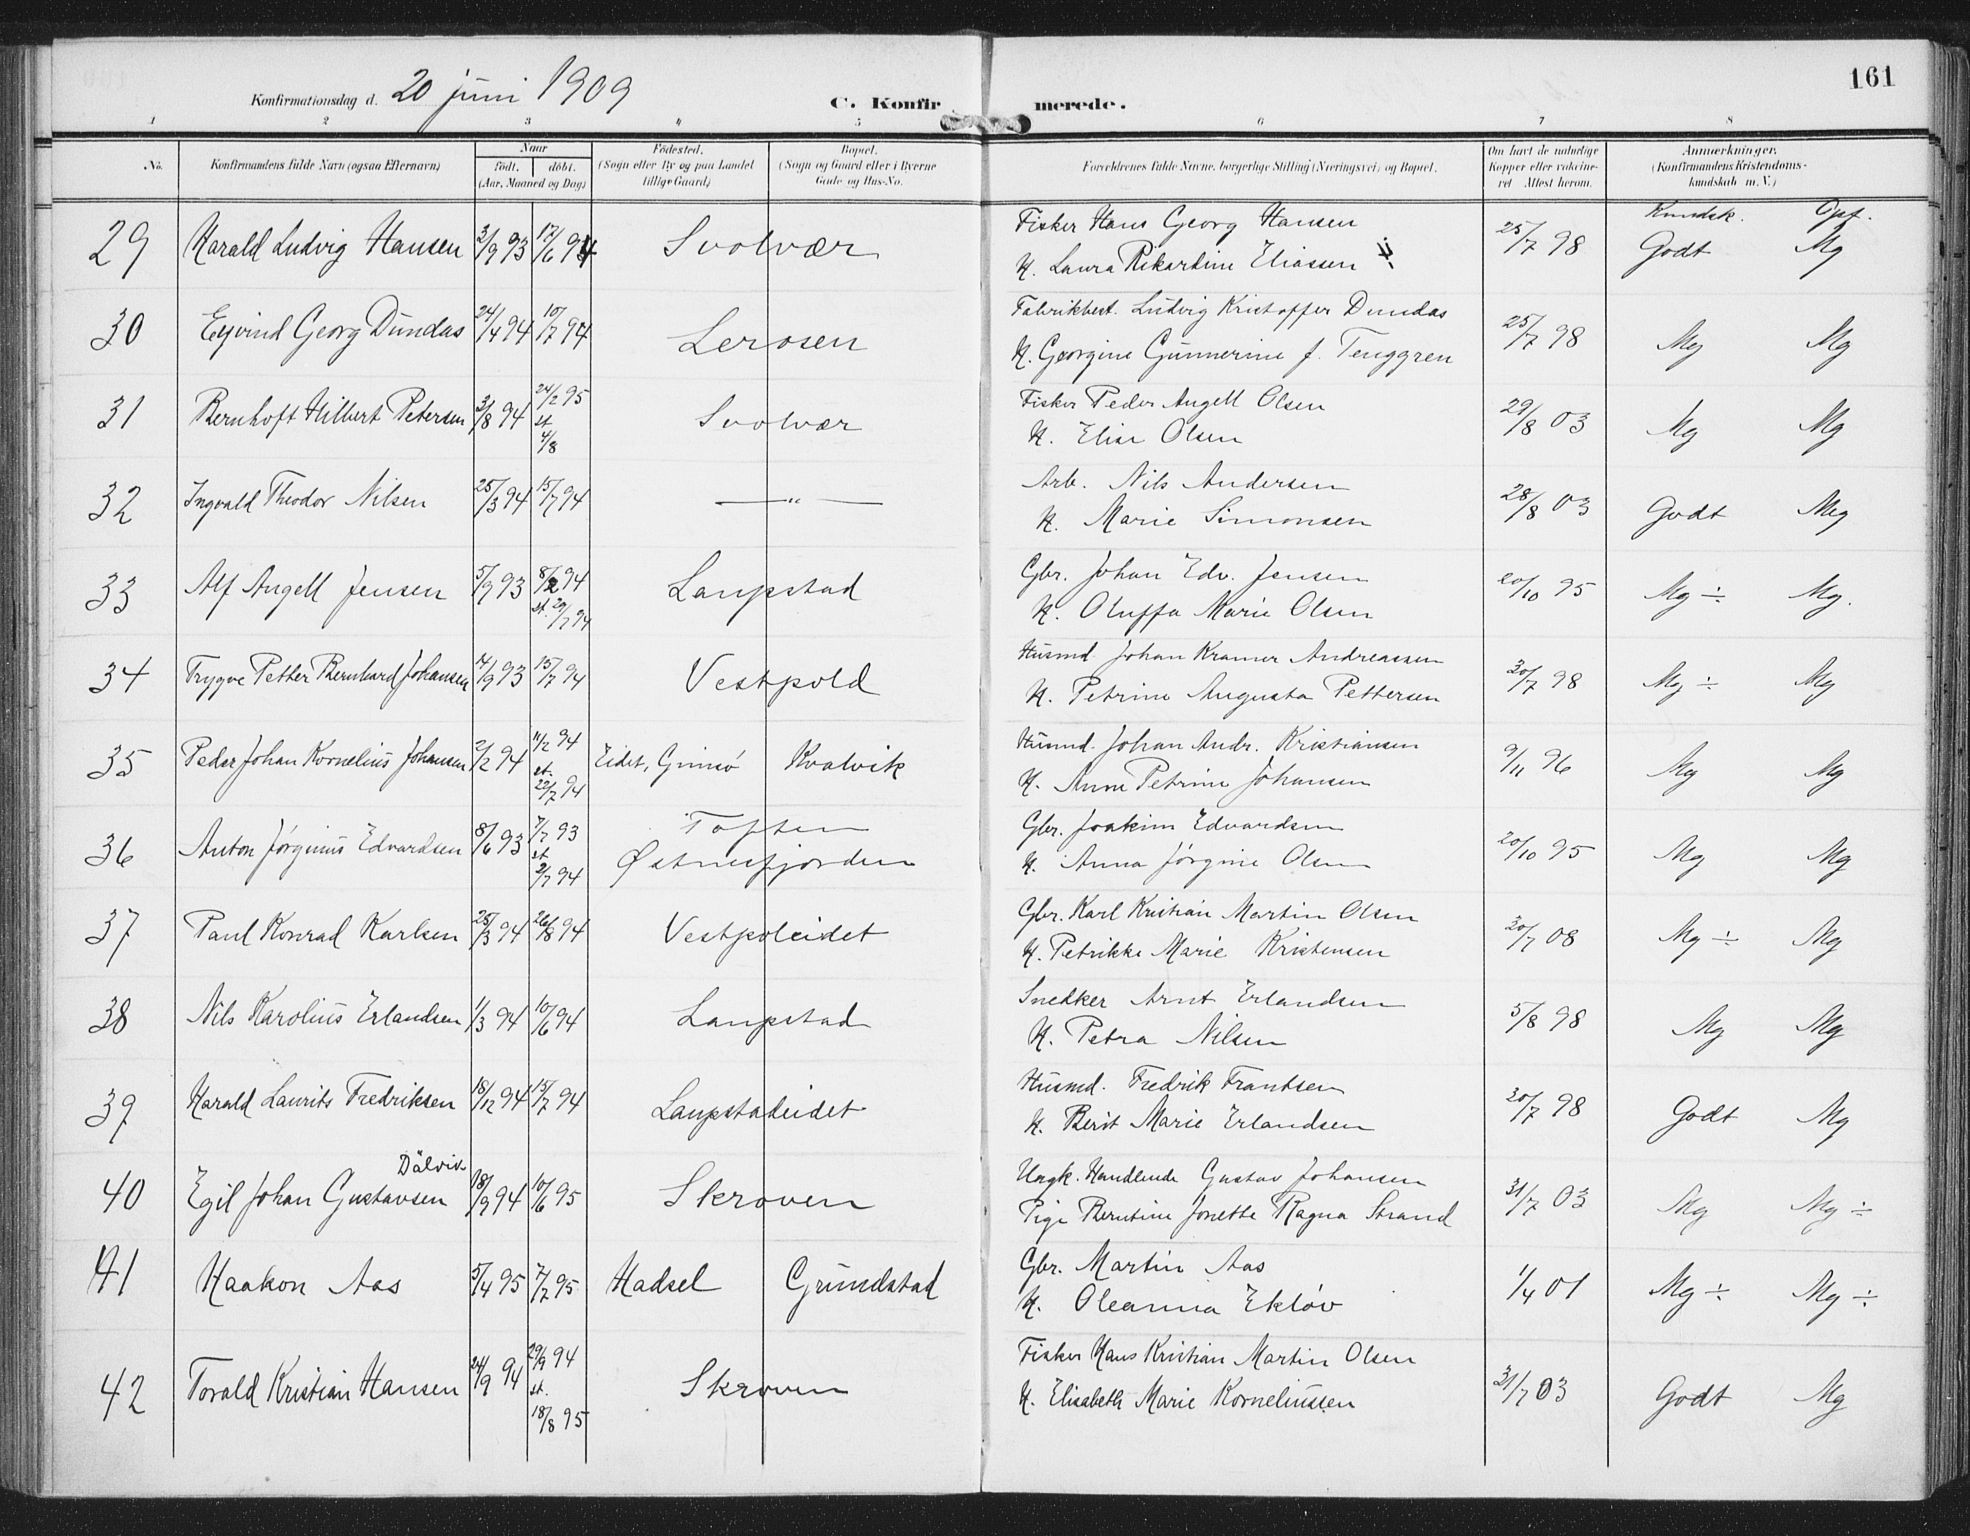 161
Konfirmationsdag d. 20 juni 1909
C. Konfirmerede.
1 2 3 4 5 6 7 8
No. Konfirmandens fulde Navn (ogsaa Efternavn) Naar født. døbt. (Aar, Maaned og Dag) Fødested. (Sogn eller By og paa Landet tillige Gaard) Bopæl. (Sogn og Gaard eller i Byerne Gade og Hus-No. Forældrenes fulde Navne, borgerlige Stilling (Næringsvei) og Bopæl. Om havt de naturlige Kopper eller vaccineret. Attest herom. Anmærkninger. (Konfirmandens Kristendomskundskab m. V.)
Kundsk. Opf.
29 Harald Ludvig Hansen 3/9 93 17/6 94 Svolvær Fisker Hans Georg Hansen 25/7 98 Godt Mg
H. Laura Rikartine Eliassen
30 Eyvind Georg Dundas 24/4 94 10/7 94 Lerosen Fabrikbest. Ludvig Kristoffer Dundas 25/7 98 Mg Mg
H. Georgine Gunnerine f. Tenggren
31 Bernhoft Hilbert Petersen 3/8 94 24/2 95 st 4/8 Svolvær Fisker Peder Angell Olsen 29/8 03 Mg Mg
H. Elise Olsen
32 Ingvald Theodor Nilsen 25/3 94 15/7 94 — " — Arb. Nils Andersen 28/8 03 Godt Meg
H. Marie Simonsen
33 Alf Angell Jensen 5/9 93 8/2 94 st. 29/7 94 Laupstad Gbr. Johan Edv. Jensen 20/10 95 Mg ÷ Mg.
H. Oluffa Marie Olsen
34 Trygve Petter Bernhard Johansen 14/9 93 15/7 94 Vestpold Husmd Johan Kramer Andreassen 30/7 98 Mg ÷ Mg
H. Petrine Augusta Pettersen
35 Peder Johan Kornelius Johansen 2/2 94 11/2 94 st. 22/7 94 Eidet, Gimsø Kvalvik Husmd. Johan Andr. Kristiansen 9/11 96 Mg Mg
H. Anne Petrine Johansen
36 Anton Jørginus Edvardsen 8/6 93 7/7 93 st 2/7 94 Toften Østnesfjorden Gbr. Joakim Edvardsen 20/10 95 Mg Mg
H. Anna Jørgine Olsen
37 Paul Konrad Karlsen 25/3 94 26/8 94 Vestpoleidet Gbr. Karl Kristian Martin Olsen 30/7 08 Mg ÷ Mg
H. Petrikke Marie Kristensen
38 Nils Karolius Erlandsen 1/3 94 10/6 94 Laupstad Snedker Arnt Erlandsen 5/8 98 Mg Mg
H. Petra Nilsen
39 Harald Laurits Fredriksen 18/12 94 15/7 94 Laupstadeidet Husmd. Fredrik Frantsen 30/7 98 Godt Mg
H. Berit Marie Erlandsen
Dälvik
40 Egil Johan Gustavsen 18/9 94 10/6 95 Skroven Ungk. Handlende Gustav Johansen 31/7 03 Mg Mg ÷
Pige Berntine Jonette Ragna Strand
41 Haakon Aas 5/4 95 7/7 95 Hadsel Grundstad Gbr. Martin Aas 1/4 01 Mg ÷ Mg ÷
H. Oleanna Ekløv
42 Torald Kristian Hansen 24/9 94 29/9 94 st. 18/8 95 Skroven Fisker Hans Kristian Martin Olsen 31/7 03 Godt Mg
H. Elisabeth Marie Korneliussen